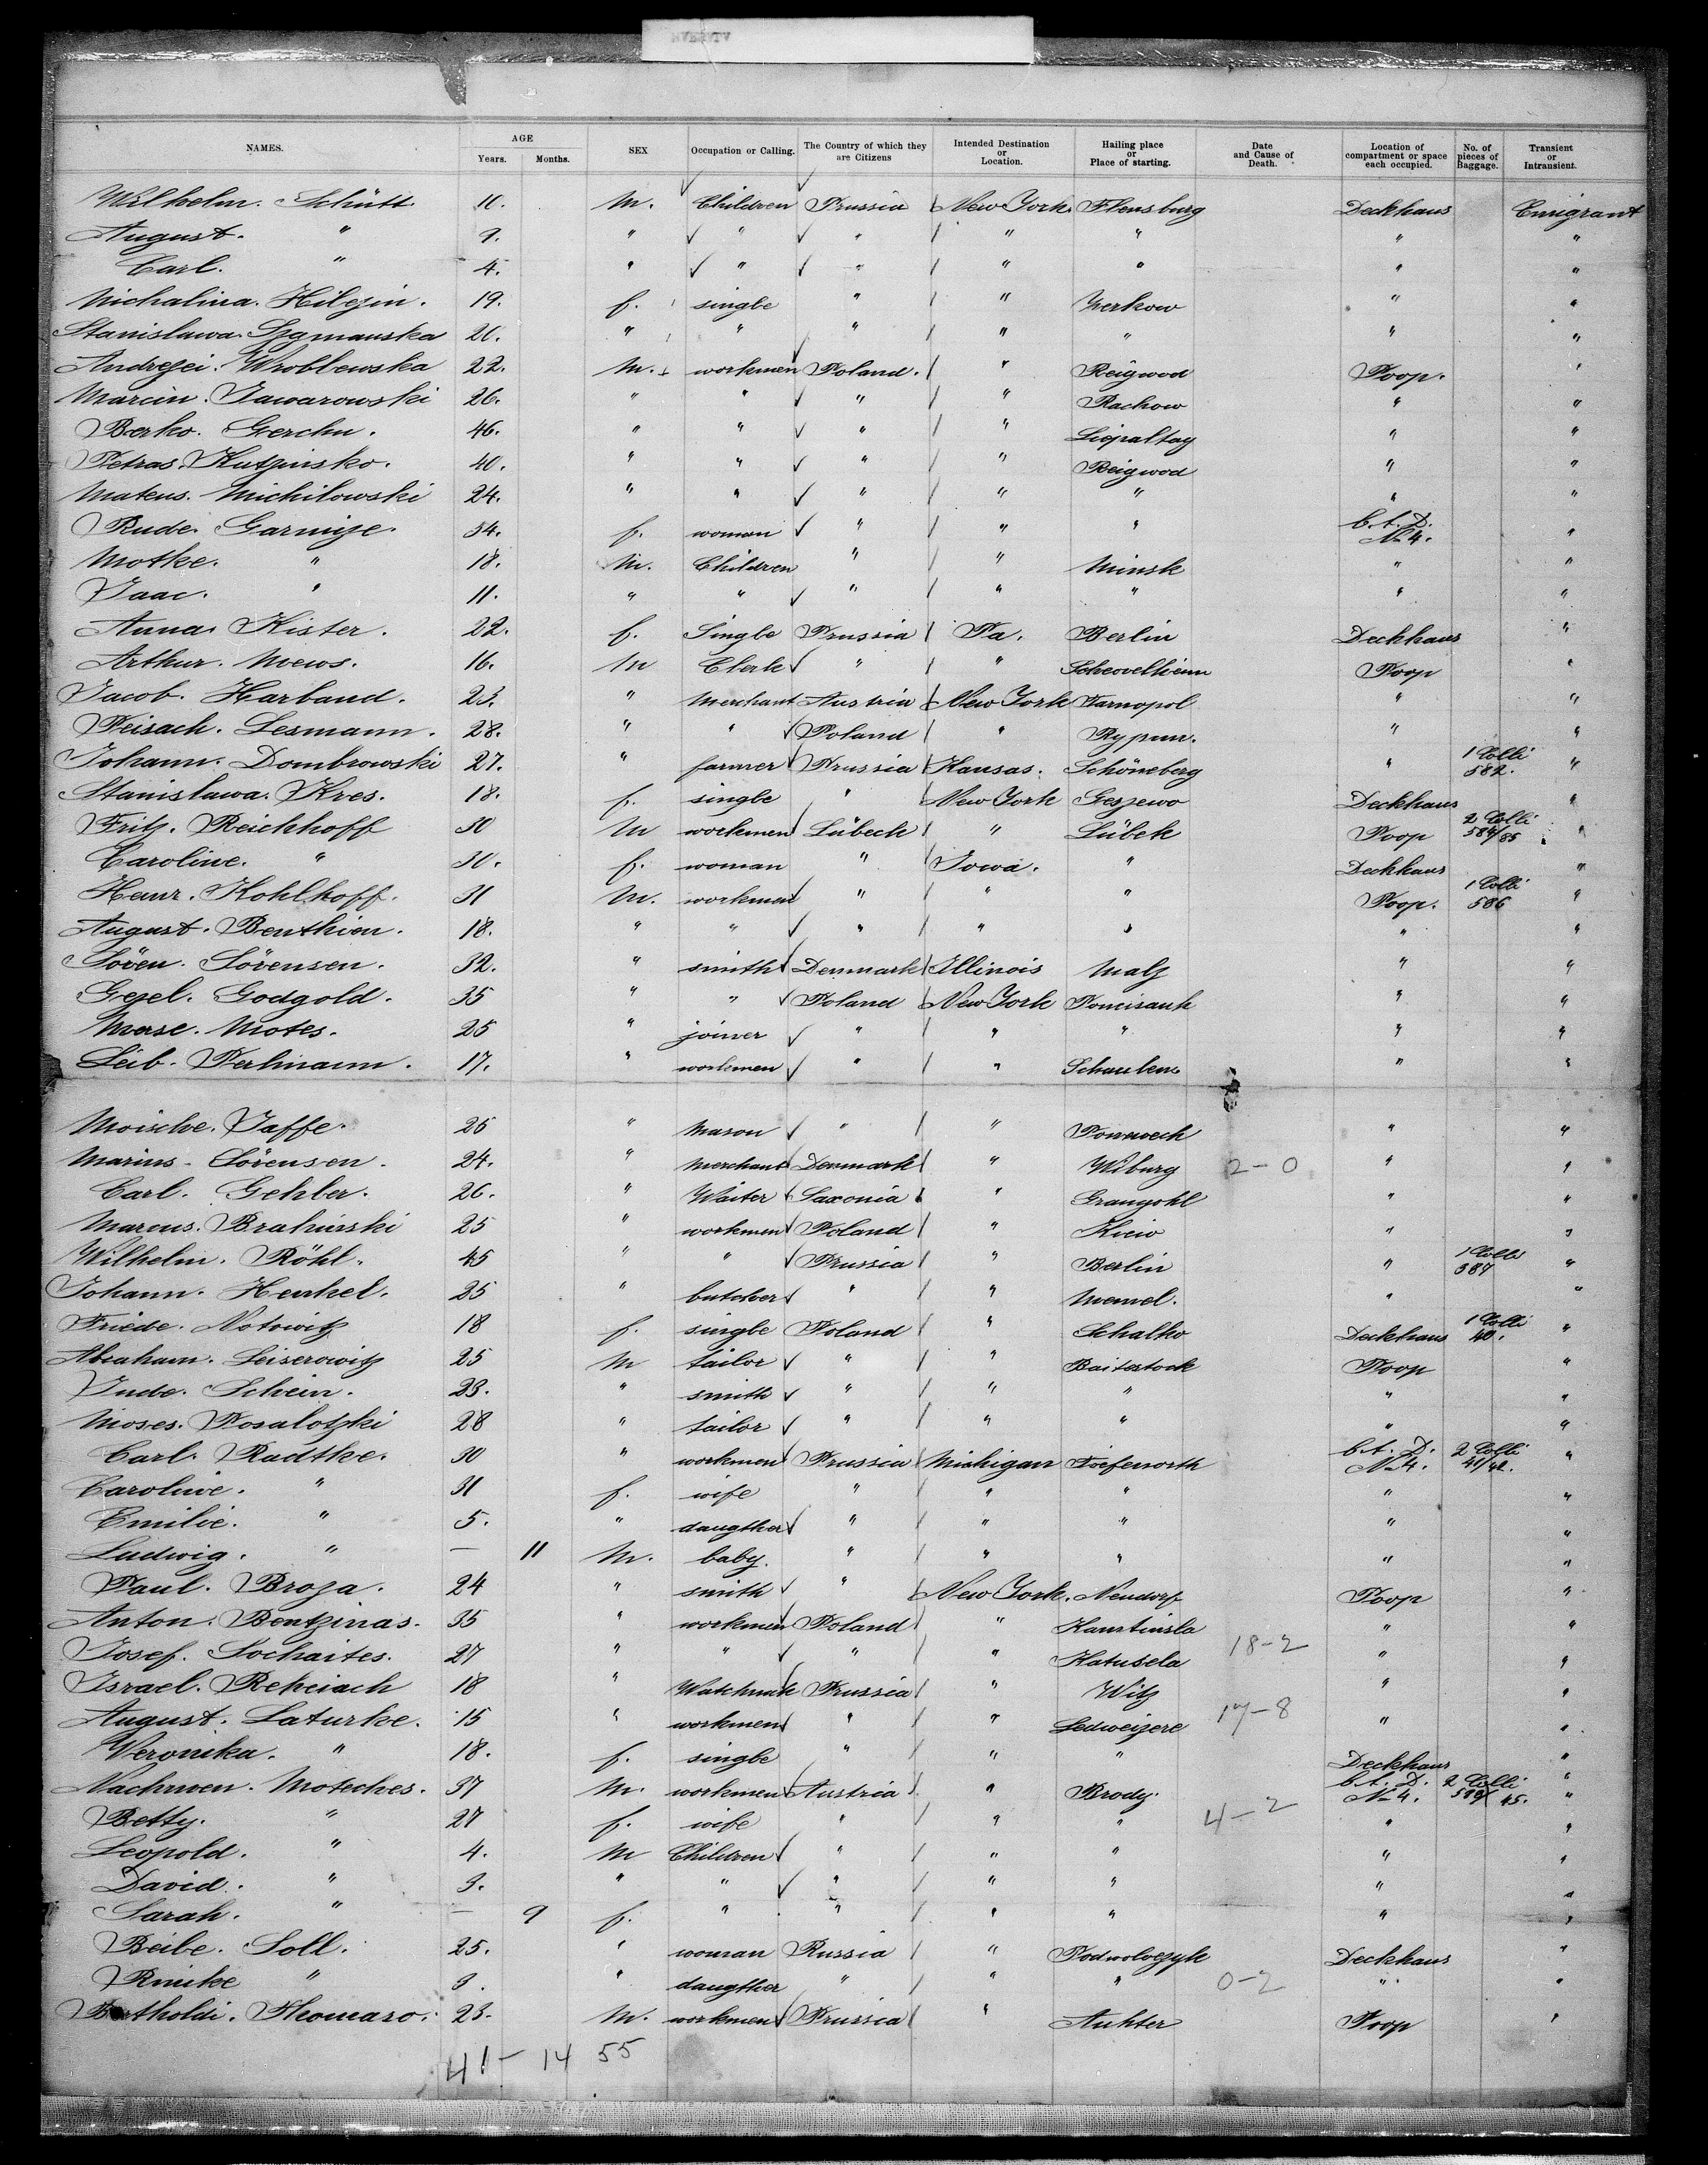 NAMES. AGE Years. Months. SEX Occupation or Calling. The Country of which they are Citizens Intended Destination or Location. Hailing place or Place of starting. Date and Cause of Death. Location of compartment or space each occupied. No. of pieces of Baggage. Transient or Intransient.
Wilhelm. Schütt. M. Children Prussia New York. Flensburg Deckhaus Emigrant
August. " 9. " " " " " " "
Carl. " 4. " " " " " " "
Michalina. 19. f. single " " Zerkow " "
Stanislawa. 20. " " " " " " "
Andrezei. Wroblewska 22. M. workmen Poland. " Reigwod Poop. "
Marcin. Jawarowski 26. " " " " Rachow " "
Berko. Gerchn. 46. " " " " " "
Petras. 40. " " " " Reigwod " "
Mateus. Michilowski 24. " " " " " " "
Rude. Garmize. 54. f. woman " " " No 4. "
Motke. " 18. M. Children " " Minsk " "
Isaac. " 11. " " " " " " "
Anna. Kister. 22. f. Single Prussia Pa. Berlin Deckhaus "
Arthur. Mews. 16. M Clerk " " Poop "
Jacob. Harband. 23. " Merchant Austria New York Tarnopol " "
Peisach. Lesmann. 28. " " Poland " Rypun. " "
Johann. Dombrowski 27. " farmer Prussia Kansas. Schöneberg " 1 Colli 582. "
Stanislawa. Kres. 18. f. single " New York Geszewo Deckhaus "
Fritz. Reickhoff 30 M workmen Lübeck " Lübek Poop 2 Colli 584/85 "
Caroline. " 30. f. woman " Iowa. " Deckhaus "
Heinr. Kohlhoff. 31 M. workmen " " " Poop. 1 Colli 586 "
August. Benthien. 18. " " " " " " "
Sören. Sörensen. 32. " smith Denmark Illinois Malz " "
Gezel. Godgold. 35 " " Poland New York " "
Motes. 25 " joiner " " " " "
Leib. Perlmann. 17. " workmen " " Schaulen " "
Moische. Jaffe. 25 " Mason " " " "
Marius. Sörensen. 24. " Merchant Denmark " Wiburg 2-0 " "
Carl. Gehber. 26. " Waiter Saxonia " " "
Marcus. Brahinski 25 " workmen Poland " Kiew " "
Wilhelm. Röhl. 45 " " Prussia " Berlin " 1 Colli 387 "
Johann. Henkel. 25 " butcher " " Memel. " "
Friede. Notowitz 18 f. single Poland " Schalko Deckhaus 1 Colli 40. "
Abraham. Leiserowitz 25 M tailor " " Baitestock Poop "
Jude. Schein. 23. " smith " " " " "
Moses. Posalotzki 28 " tailor " " " " "
Carl. Radtke. 30 " workmen Prussia Michigan No 4. 2 Colli 41/42. "
Caroline. " 31 f. wife " " " " "
Emilie. " 5. " daugther " " " " "
Ludwig. " — 11 M. baby. " " " " "
Paul. Broza. 24 " smith " New York. Neudorf Poop "
Anton. Bentzinas. 35 " workmen Poland " " "
Josef. Sochaites. 27 " " " " Katusela 18-2 " "
Israel. 18 " Prussia " Witz " "
August. Laturke. 15 " workmen " " 17-8 " "
Veronika. " 18. f. single " " " Deckhaus "
Moteches. 37 M. workmen Austria " Brody. No 4. 2 Colli "
Betty. " 27 f. wife " " " 4-2 " "
Leopold. " 4. M Children " " " " "
David. " 3. " " " " " " "
Sarah. " — 9 f. " " " " " "
Beibe. Soll. 25. " woman Russia " Deckhaus "
" 9. " daugther " " " 0-2 " "
23. M. workmen Prussia " Poop "
41 - 14 55